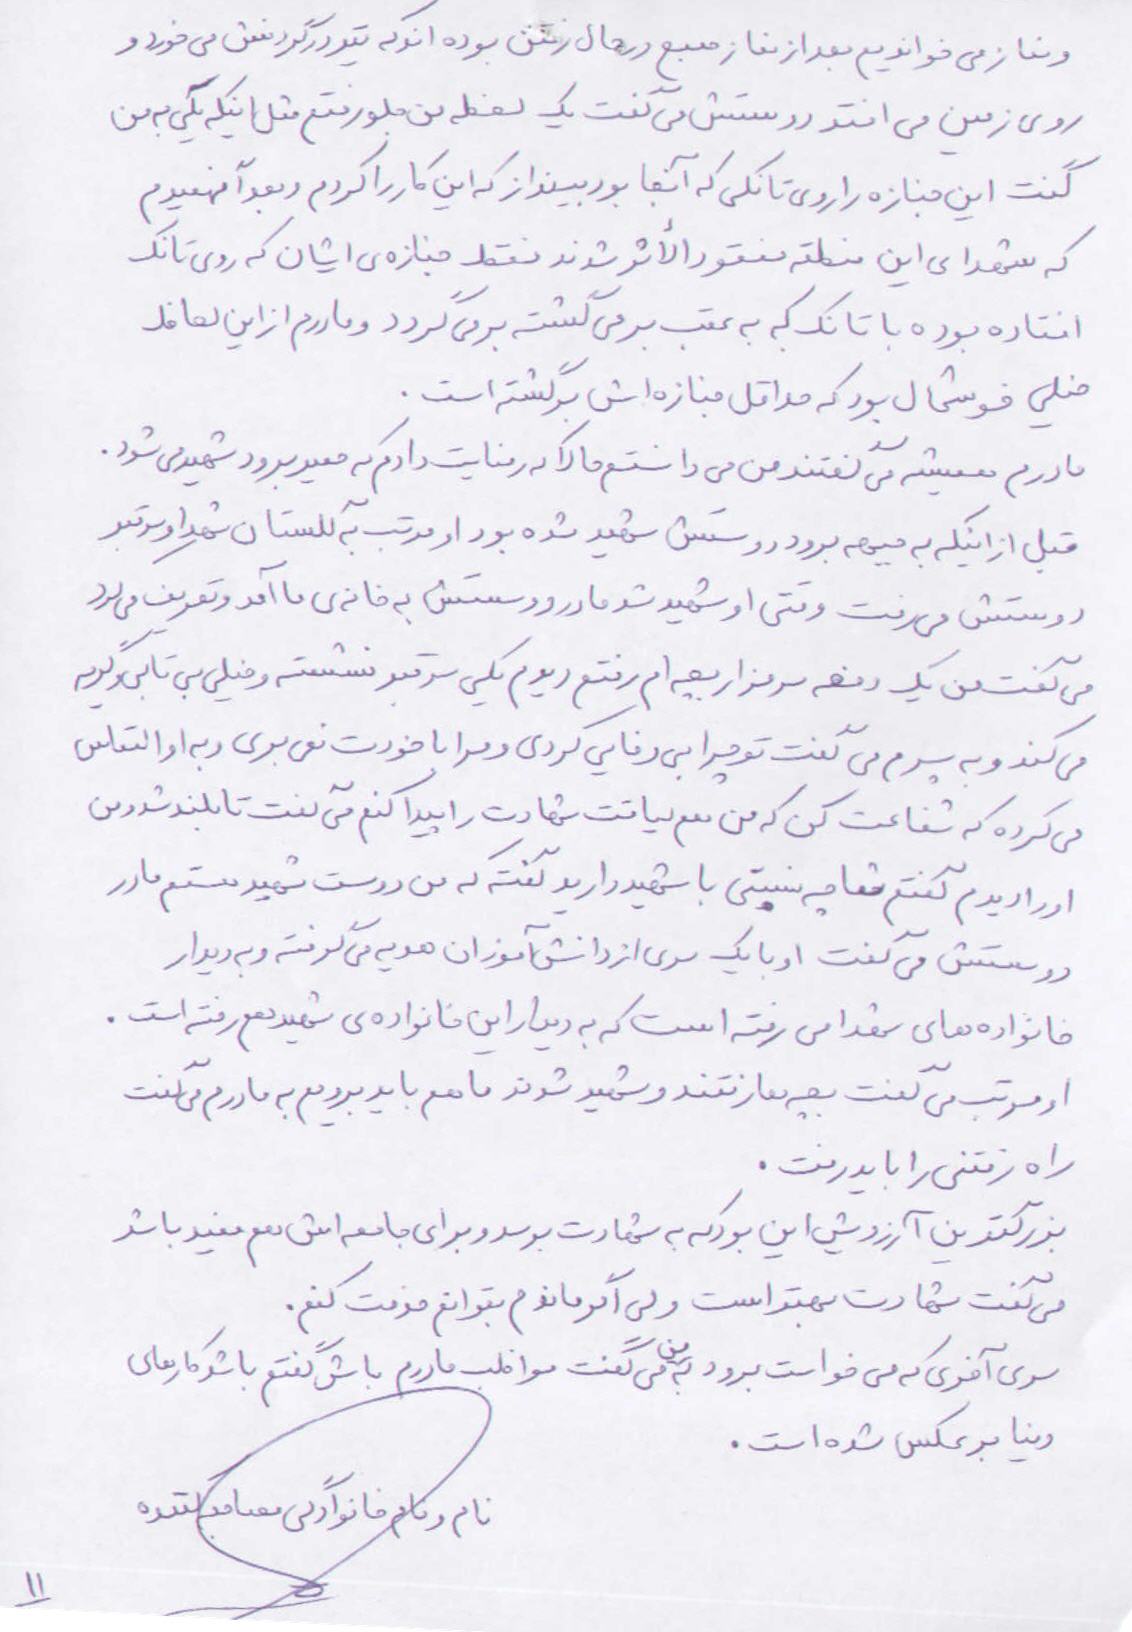 و نماز می خوانیم بعد از نماز صبح در حال رفتن بوده اند که تیر در گردنش می خورد و
روی زمین می افتد دوستش می گفت یک لحظه من جلو رفتم مثل اینکه یکی به من
گفت این جنازه را روی تانکی که آنجا بود بینداز که این کار را کردم و بعداً فهمیدم
که شهدای این منطقه مفقودالأثر شدند فقط جنازه ی ایشان که روی تانک
افتاده بوده با تانک که به عقب بر می گشته بر می گردد و مادرم از این لحاظ
خیلی خوشحال بود که حداقل جنازه اش برگشته است .
مادرم همیشه می گفتند من می دانستم حالا که رضایت دادم که مجید برود شهید می شود .
قبل از اینکه به جبهه برود دوستش شهید شده بود او مرتب به گلستان شهدا و سر قبر
دوستش می رفت وقتی او شهید شد مادر دوستش به خانه ی ما آمد و تعریف می کرد
می گفت من یک دفعه سر مزار بچه ام رفتم دیدم یکی سر قبر نشسته و خیلی بی تابی و گریه
می کند و به پسرم می گفت تو چرا بی وفایی کردی و مرا با خودت نمی بری و به او التماس
می کرده که شفاعت کن که من هم لیاقت شهادت را پیدا کنم می گفت تا بلند شد و من
او را دیدم گفتم شما چه نسبتی با شهید دارید گفته که من دوست شهید هستم مادر
دوستش می گفت او با یک سری از دانش آموزان هدیه می گرفته و به دیدار
خانواده های شهدا می رفته است که به دیدار این خانواده ی شهید هم رفته است .
او مرتب می گفت بچه ها رفتند و شهید شدند ما هم باید برویم به مادرم می گفت
راه رفتنی را باید رفت .
بزرگترین آرزویش این بود که به شهادت برسد و برای جامعه اش هم مفید باشد
می گفت شهادت بهتر است ولی اگر ماندم بتوانم خدمت کنم .
سری آخری که می خواست برود به من می گفت مواظب مادرم باش گفتم باشد کارهای
دنیا بر عکس شده است .
نام و نام خانوادگی مصاحبه کننده
۱۱